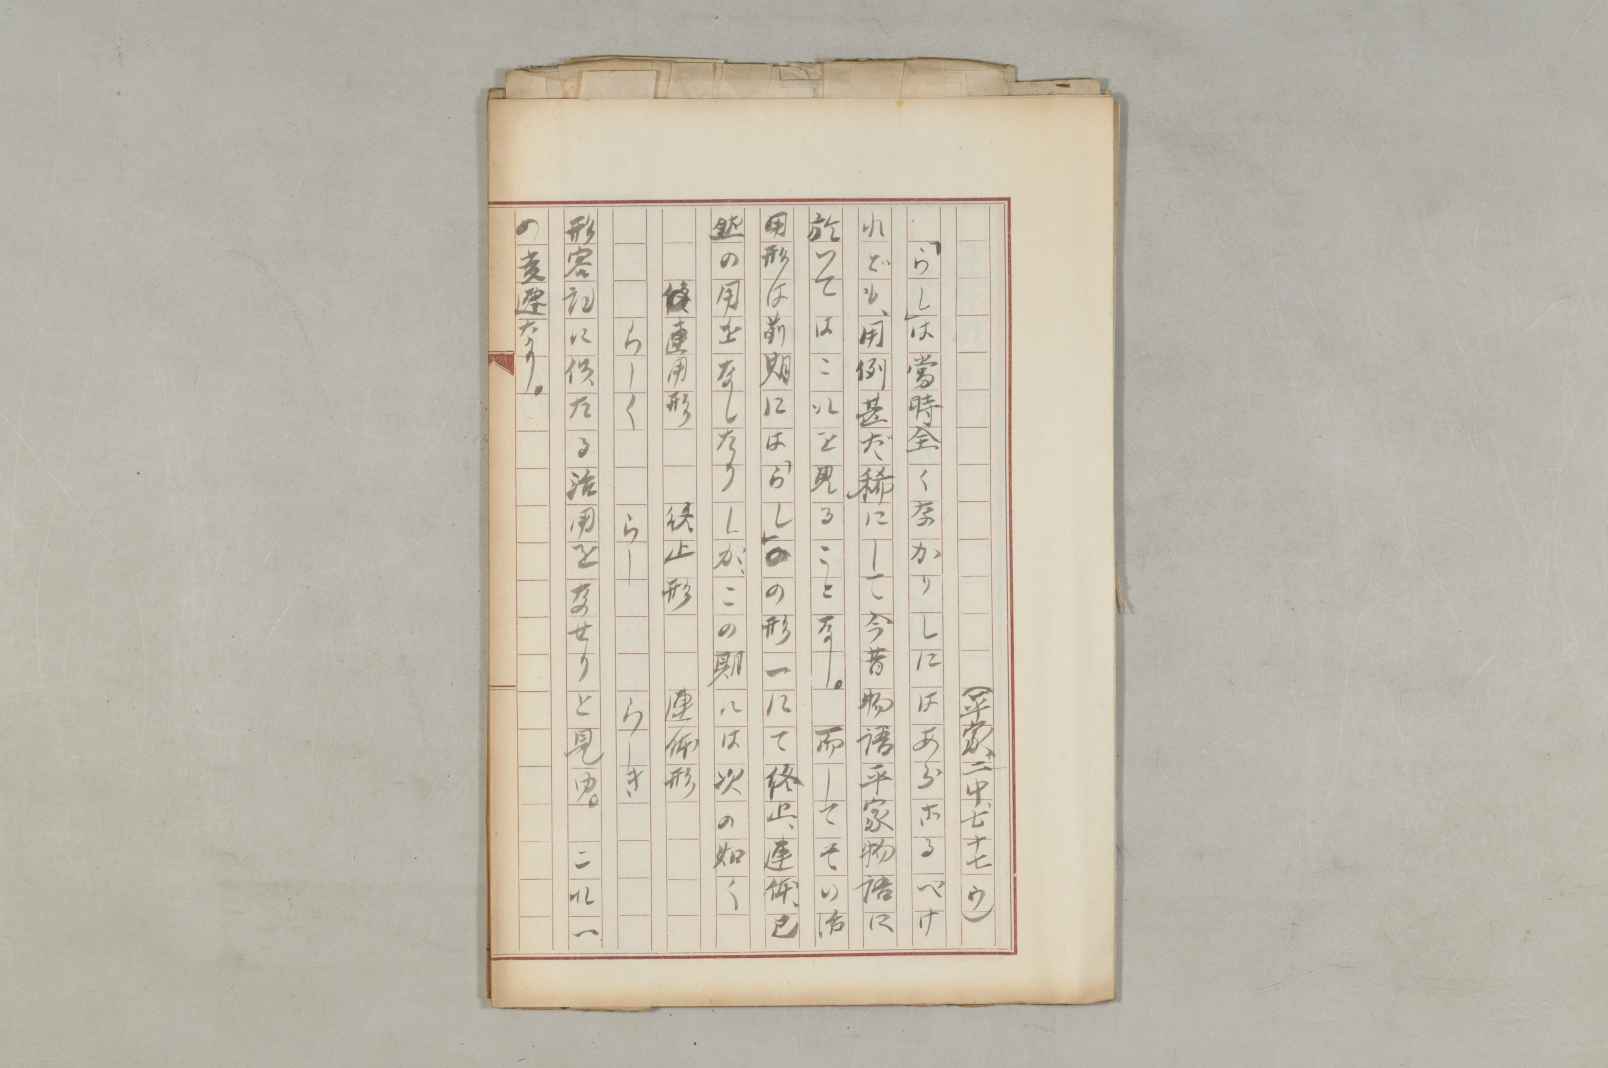 (平家、二中、七十七ウ)
「らし」は當時全くなかりしにはあらざるべけ
れども、用例甚だ稀にして今昔物語平家物語に
於いてはこれを見ることなし。而してその活
用形は前期には「らし」のの形一にて終止、連体、已
然の用をなしたりしが、この期には次の如く
連用形 終止形 連体形
らしく らし らしき
形容詞に似たる活用をなせりと見ゆ。これ一
の変遷なり。